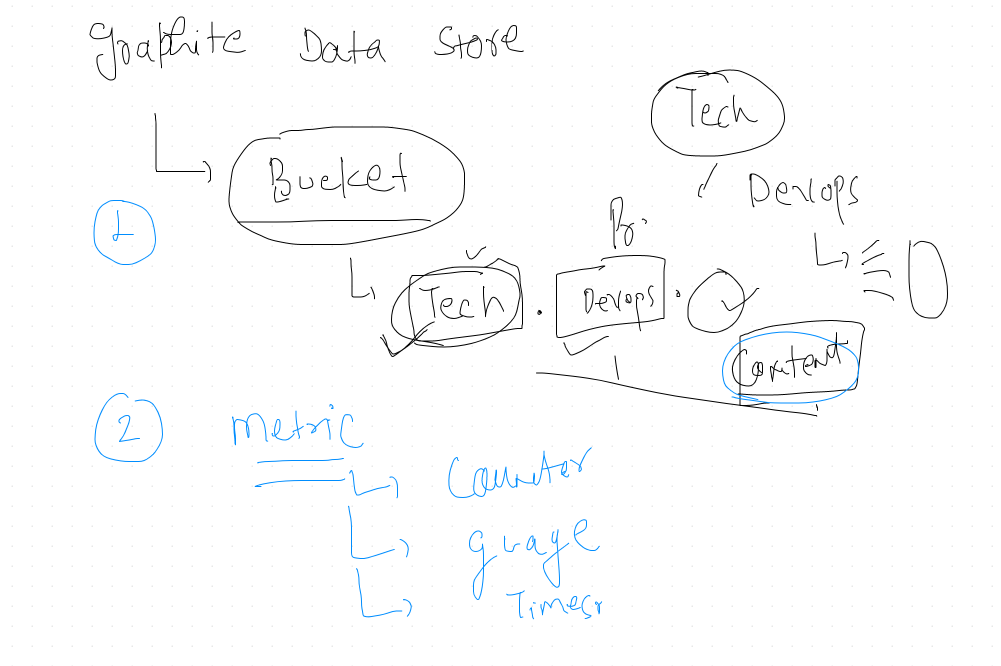 Graphite Data Store
Tech
Bucket
Devops
1
Pr.
Tech . Devops .
Content
2 Metric
Counter
guage
Timer